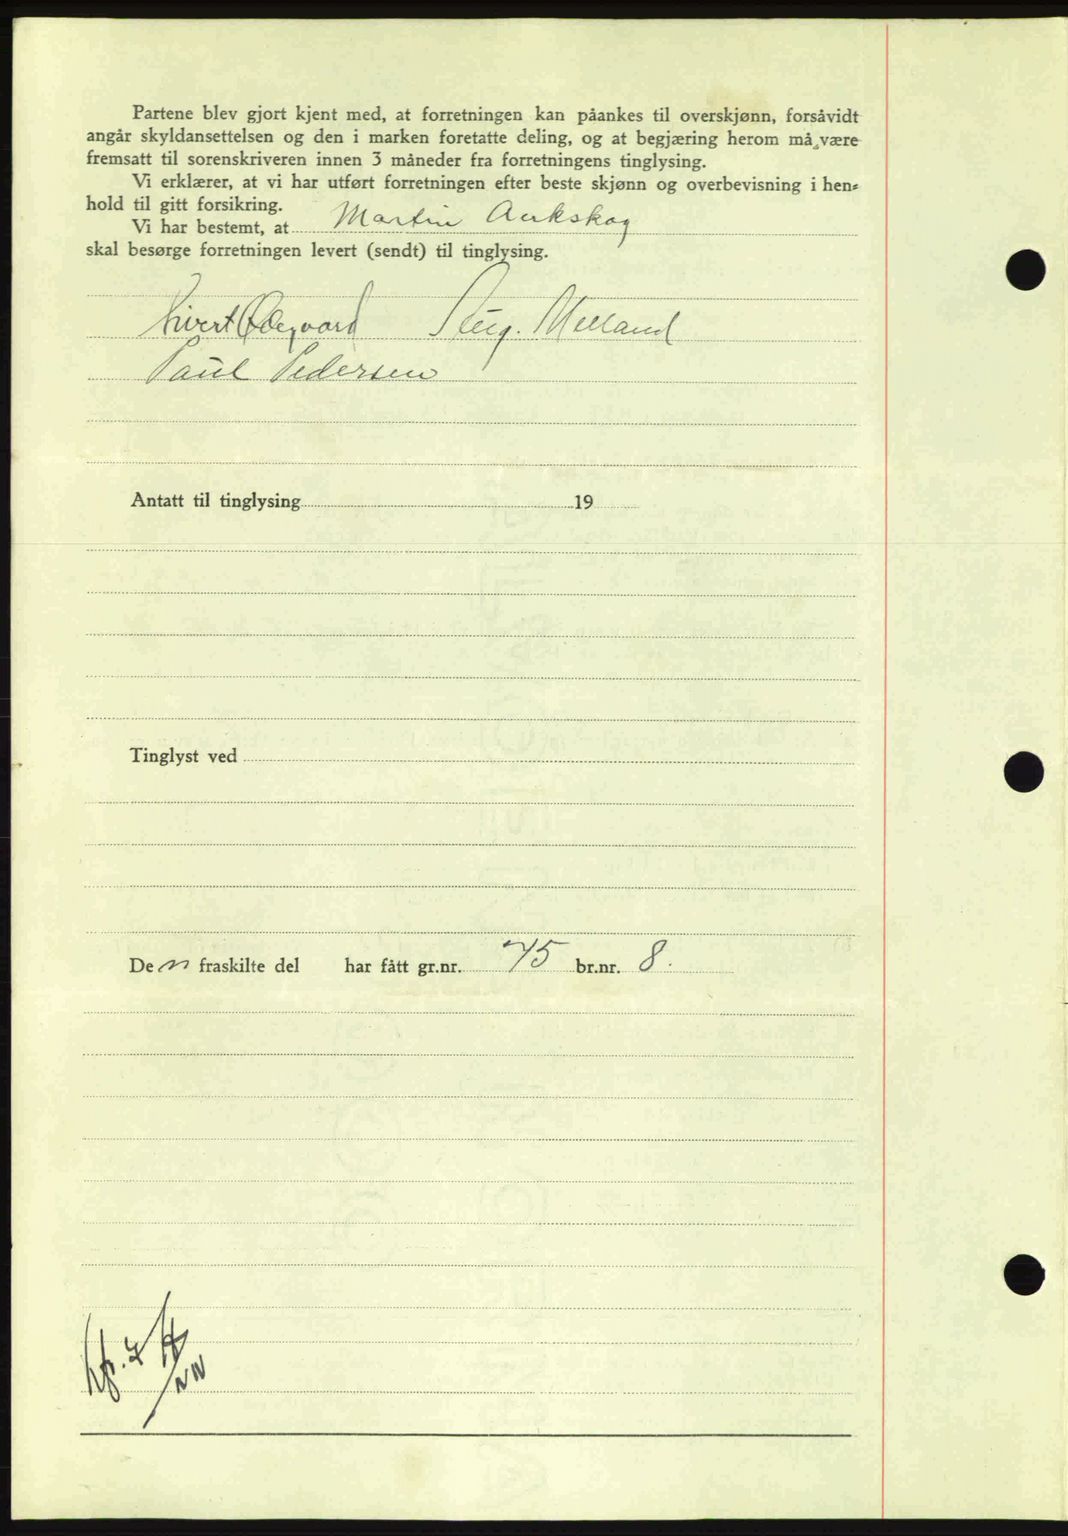 Partene blev gjort kjent med, at forretningen kan påankes til overskjønn, forsåvidt
angår skyldansettelsen og den i marken foretatte deling, og at begjæring herom må være
fremsatt til sorenskriveren innen 3 måneder fra forretningens tinglysing.
Vi erklærer, at vi har utført forretningen efter beste skjønn og overbevisning i hen-
hold til gitt forsikring.
Vi har bestemt, at Martin Aukskog
skal besørge forretningen levert (sendt) til tinglysing.
Sivert Ødegaard
Paul Pedersen
Antatt til tinglysing 19
Tinglyst ved
De n fraskilte del har fått gr.nr. 75 br.nr. 8.